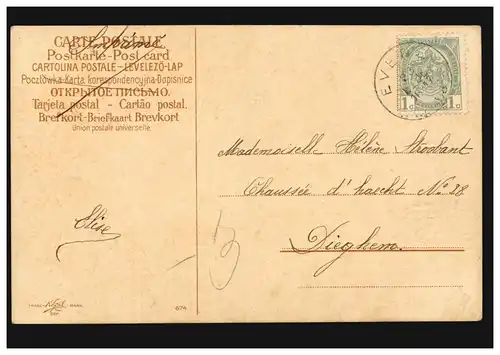 Imprimé
CARTE POSTALE
Postkarte-Post card
CARTOLINA POSTALE-LEVELEZŐ-LAP
Pocztówka-Karta korespondencyjna-Dopisnice
ОТКРЫТОЕ ПИСЬМО.
Tarjeta postal - Cartão postal.
Brefkort-Briefkaart Brevkort
Union postale universelle.
EVE
1c 1c
Mademoiselle Hélène Stroobant
Chaussée d'haecht No 28
Dieghem.
Elise
5
TRADE MARK
674